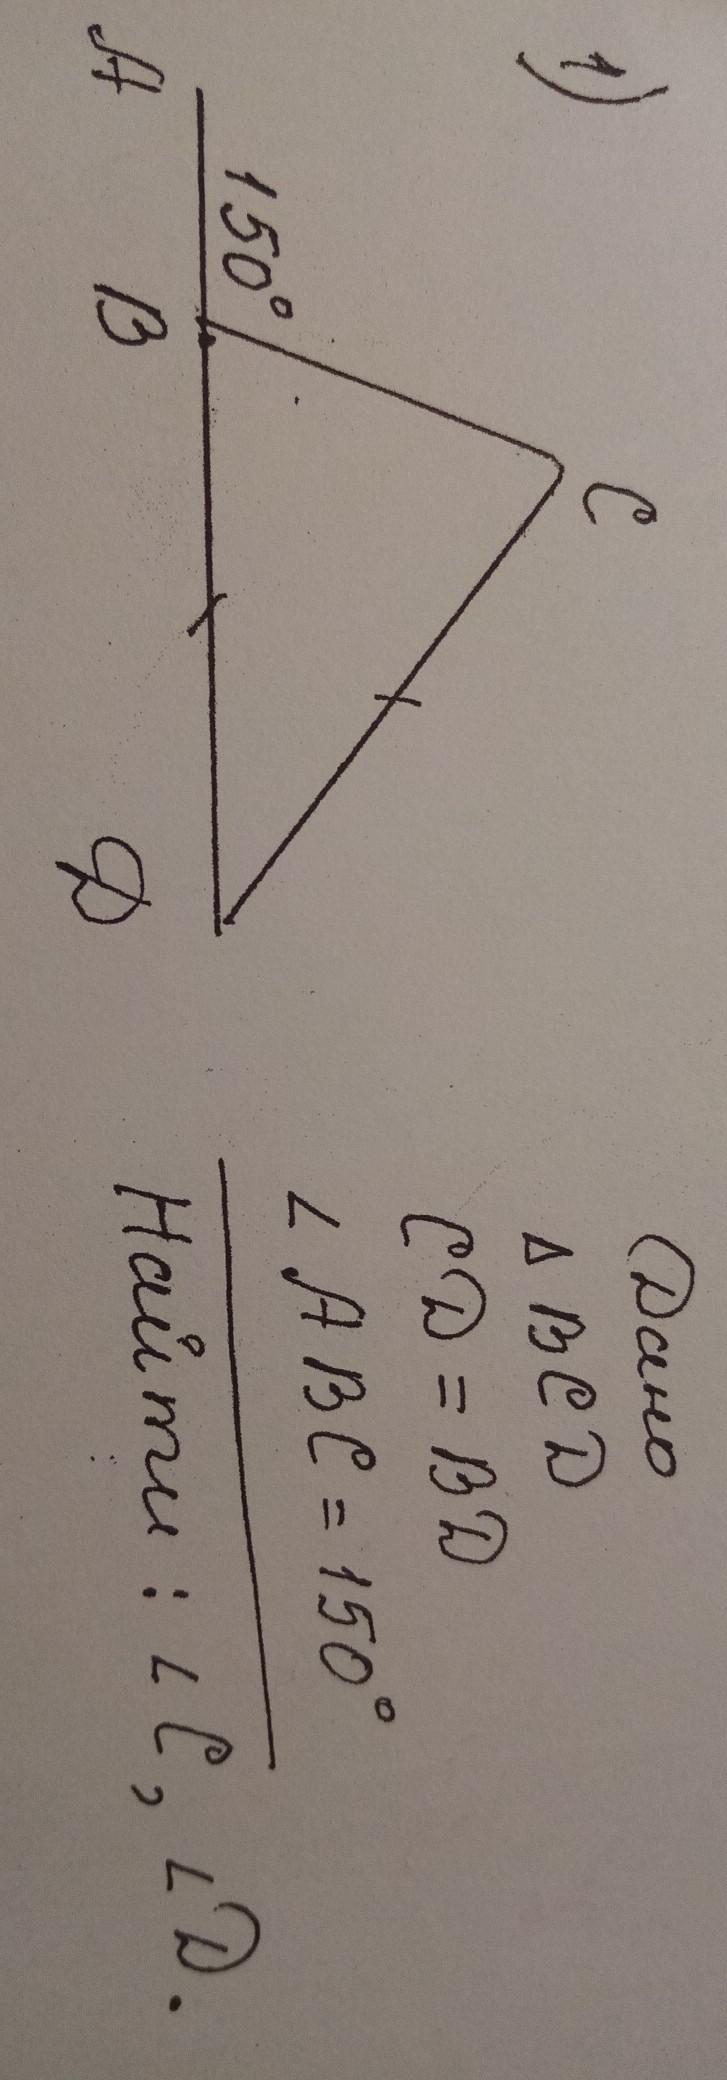 1)
C
150°
A B D
Дано
Δ BCD
CD = BD
∠ ABC = 150°
Найти : ∠ C, ∠ D.